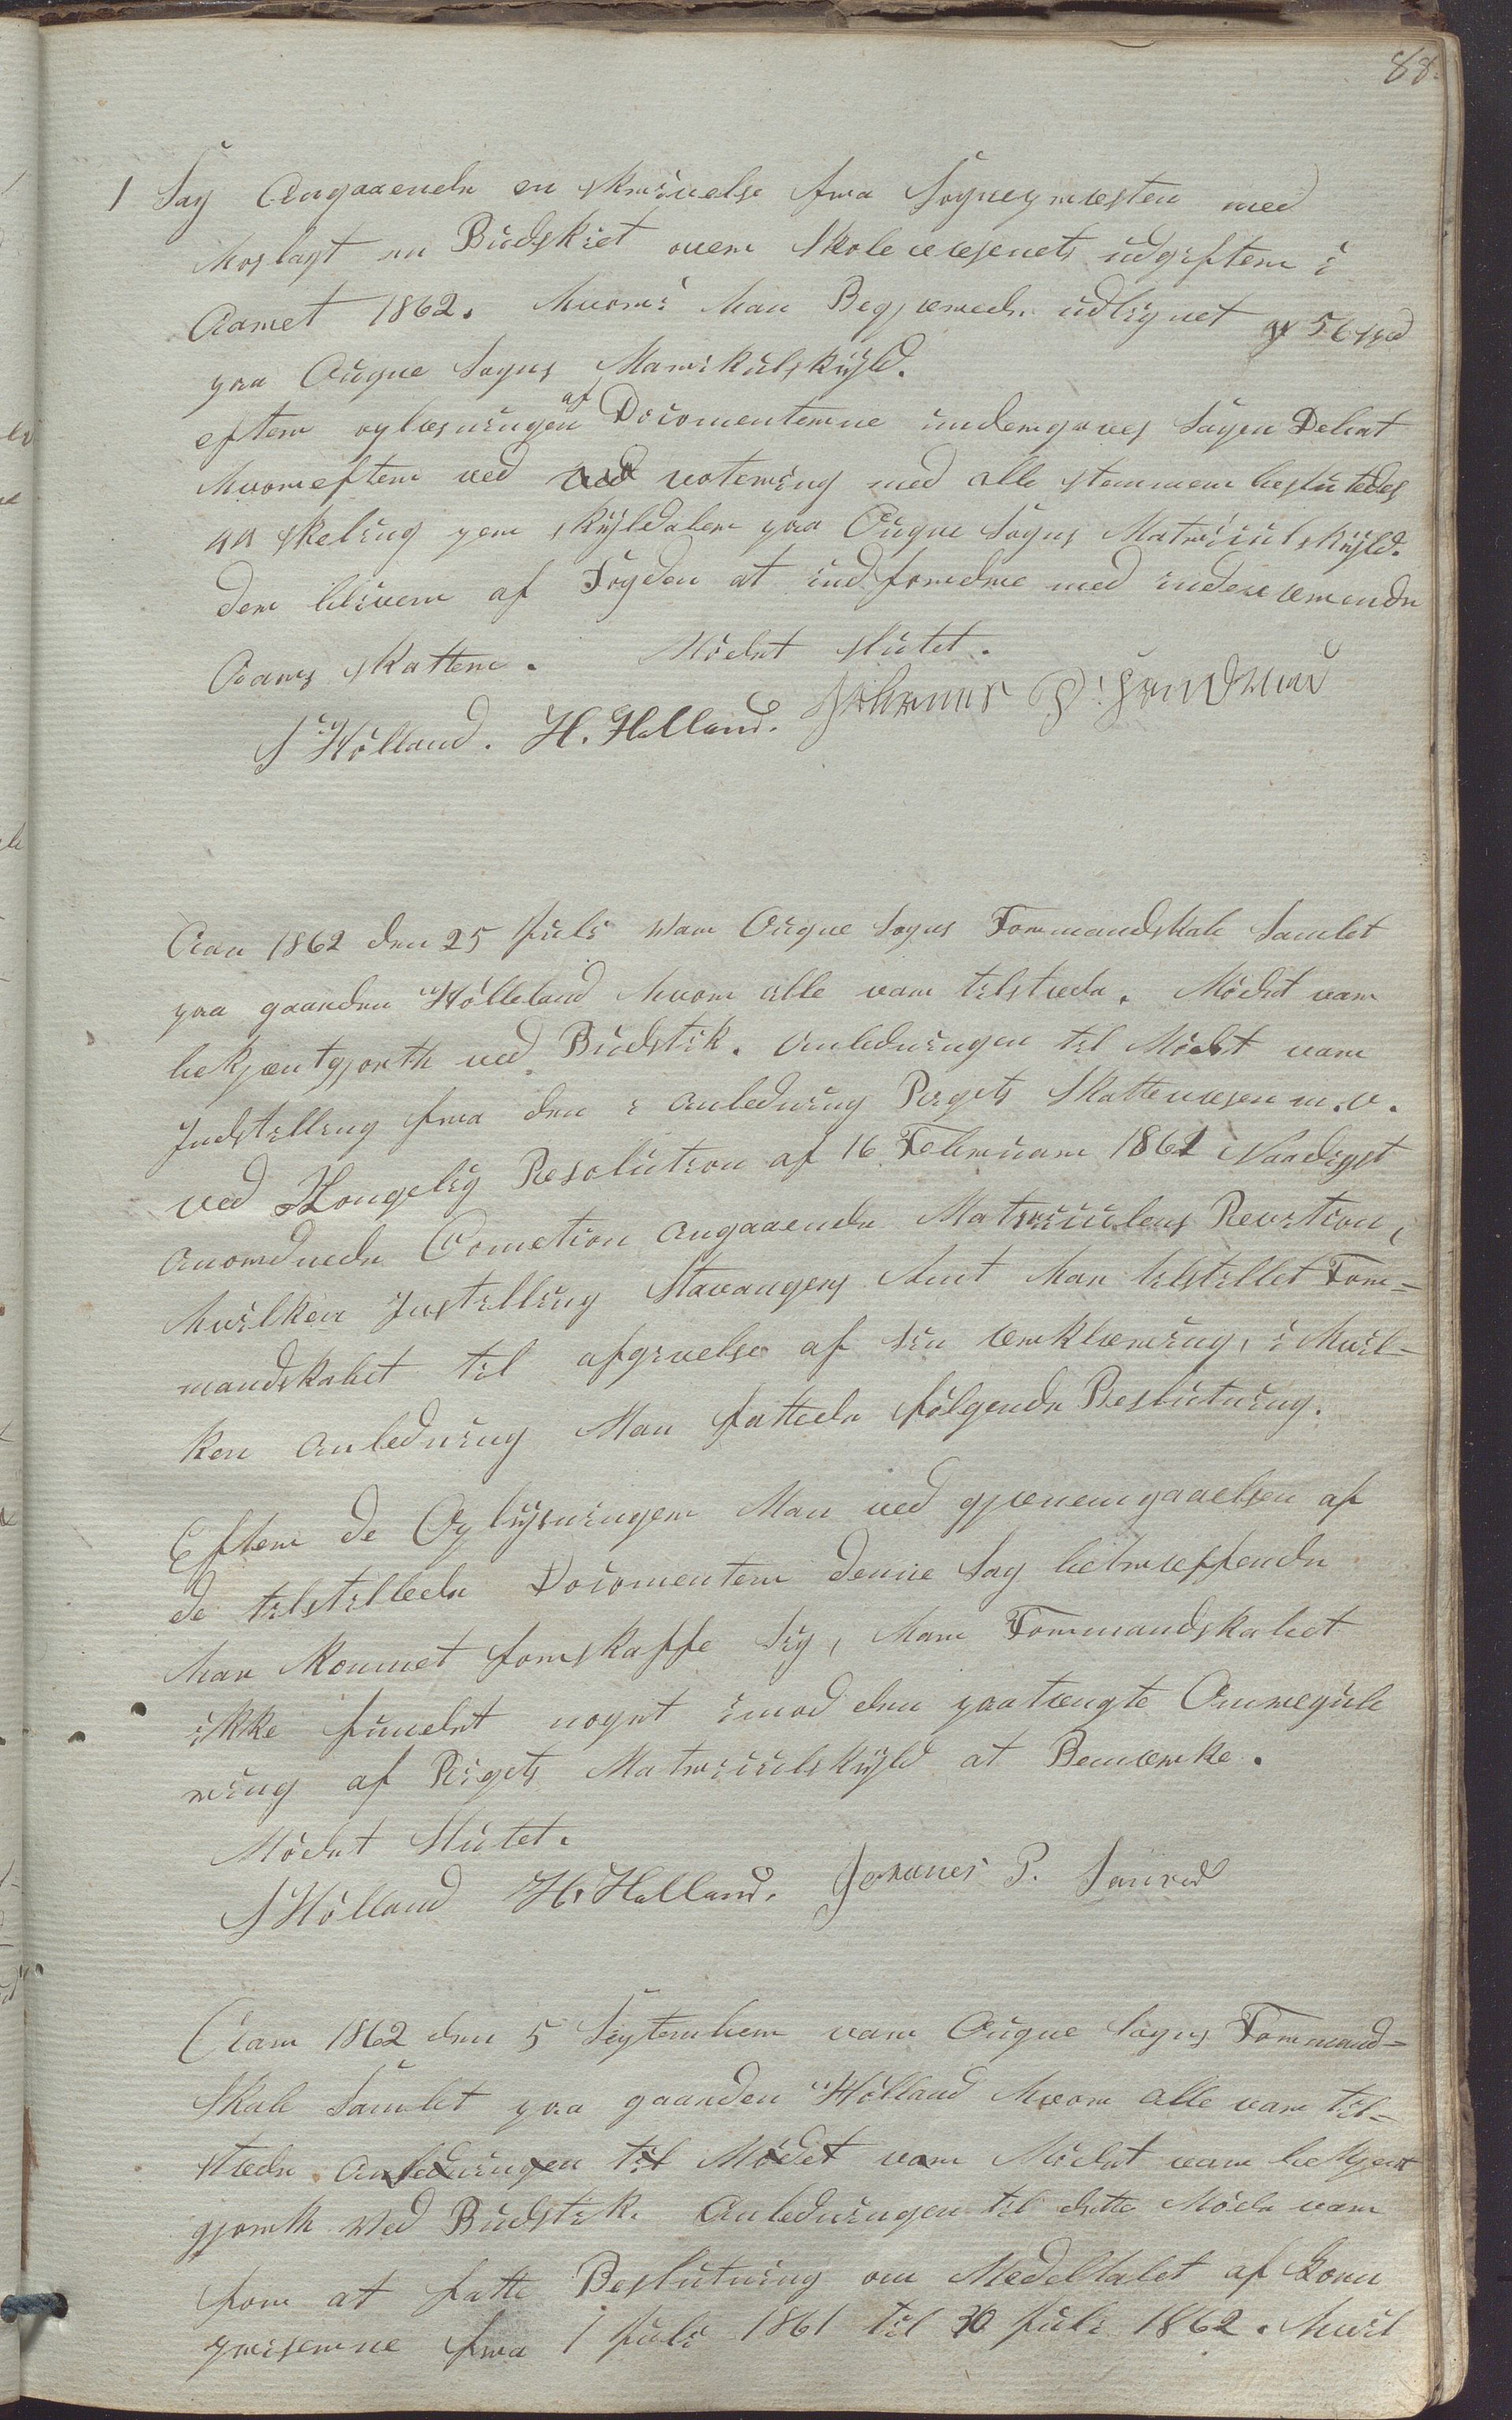 88.
1 Sag Angaaende en skrivelse fra Sognepræsten med
hoslagt en Budskiet over Skolevæsenets udgifter i
Aaret 1862. hvori han Begjærede udlignet 56 spd
paa Ougne Sogns Marikulskyld.
efter oplæsningen af Docomenterne undergaves Sagen Debat
hvorefter ved ved votering med alle stemmer besluttedes
44 skeling per skylddaler paa Ougne Sogns Matriculskyld.
der bliver af Fogden at indfordre med indeværende
Aars skatter. Mödet slutet.
S Hölland. H. Helland. Johannes P. Sandved
Aar 1862 den 25 Juli var Ougne Sogns Formandskab Samlet
paa gaarden Hölleland hvor alle var tilstæde. Mödet var
bekjentgjorth ved Budstik. Anledningen til Mödet var
Indstilling fra den i anledning Rigets Skattevæsen m.v.
ved Kongelig Resolution af 16 Februar 1861 Naadigst
anordnede Cometion angaaende Matriculens Revetion,
hvilken Instilling Stavangers Amt har tilstillet For-
mandskabet til afgivelse af sin ærklæring, i hvil-
ken anledning Man fattede fölgende Beslutning.
Efter de Oplysninger Man ved gjænemgaaelsen af
de tilstillede Docomenter denne Sag betræffende
har kunnet forskaffe sig, har Formandskabet
ikke fundet noget imod den paatængte Omregule
ring af Rigets Matriculskyld at Bemærke.
Mödet Slutet.
S Hölland H. Helland. Johanes P. Sanved
Aar 1862 den 5 September var Ougne Sogns Formand-
skab Samlet paa gaarden Hölland hvor alle var til-
stæde. Anledningen til Mödet var Mödet var bekjent
gjorth ved Budstik. Anledningen til dette Möde var
for at fatte Beslutning om Medeltalet af Korn
priserne fra 1 Juli 1861 til 30 Juli 1862. hvil